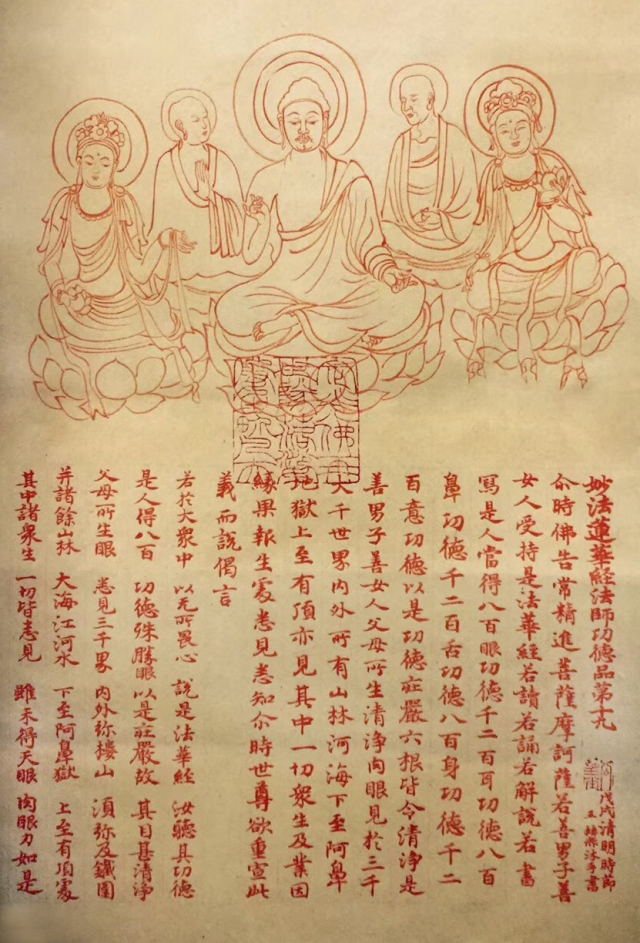 妙法蓮華經法師功德品第十九
尒時佛告常精進菩薩摩訶薩若善男子善
女人受持是法華經若讀若誦若解說若書
寫是人當得八百眼功德千二百耳功德八百
鼻功德千二百舌功德八百身功德千二
百意功德以是功德莊嚴六根皆令清淨是
善男子善女人父母所生清淨肉眼見於三千
大千世界內外所有山林河海下至阿鼻
地獄上至有頂亦見其中一切衆生及業因
緣果報生處悉見悉知尒時世尊欲重宣此
義而說偈言
若於大衆中 以无所畏心 說是法華經 汝聽其功德
是人得八百 功德殊勝眼 以是莊嚴故 其目甚清淨
父母所生眼 悉見三千界 內外弥樓山 須弥及鐵圍
并諸餘山林 大海江河水 下至阿鼻獄 上至有頂處
其中諸衆生 一切皆悉見 雖未得天眼 肉眼力如是
戊戌清明時節